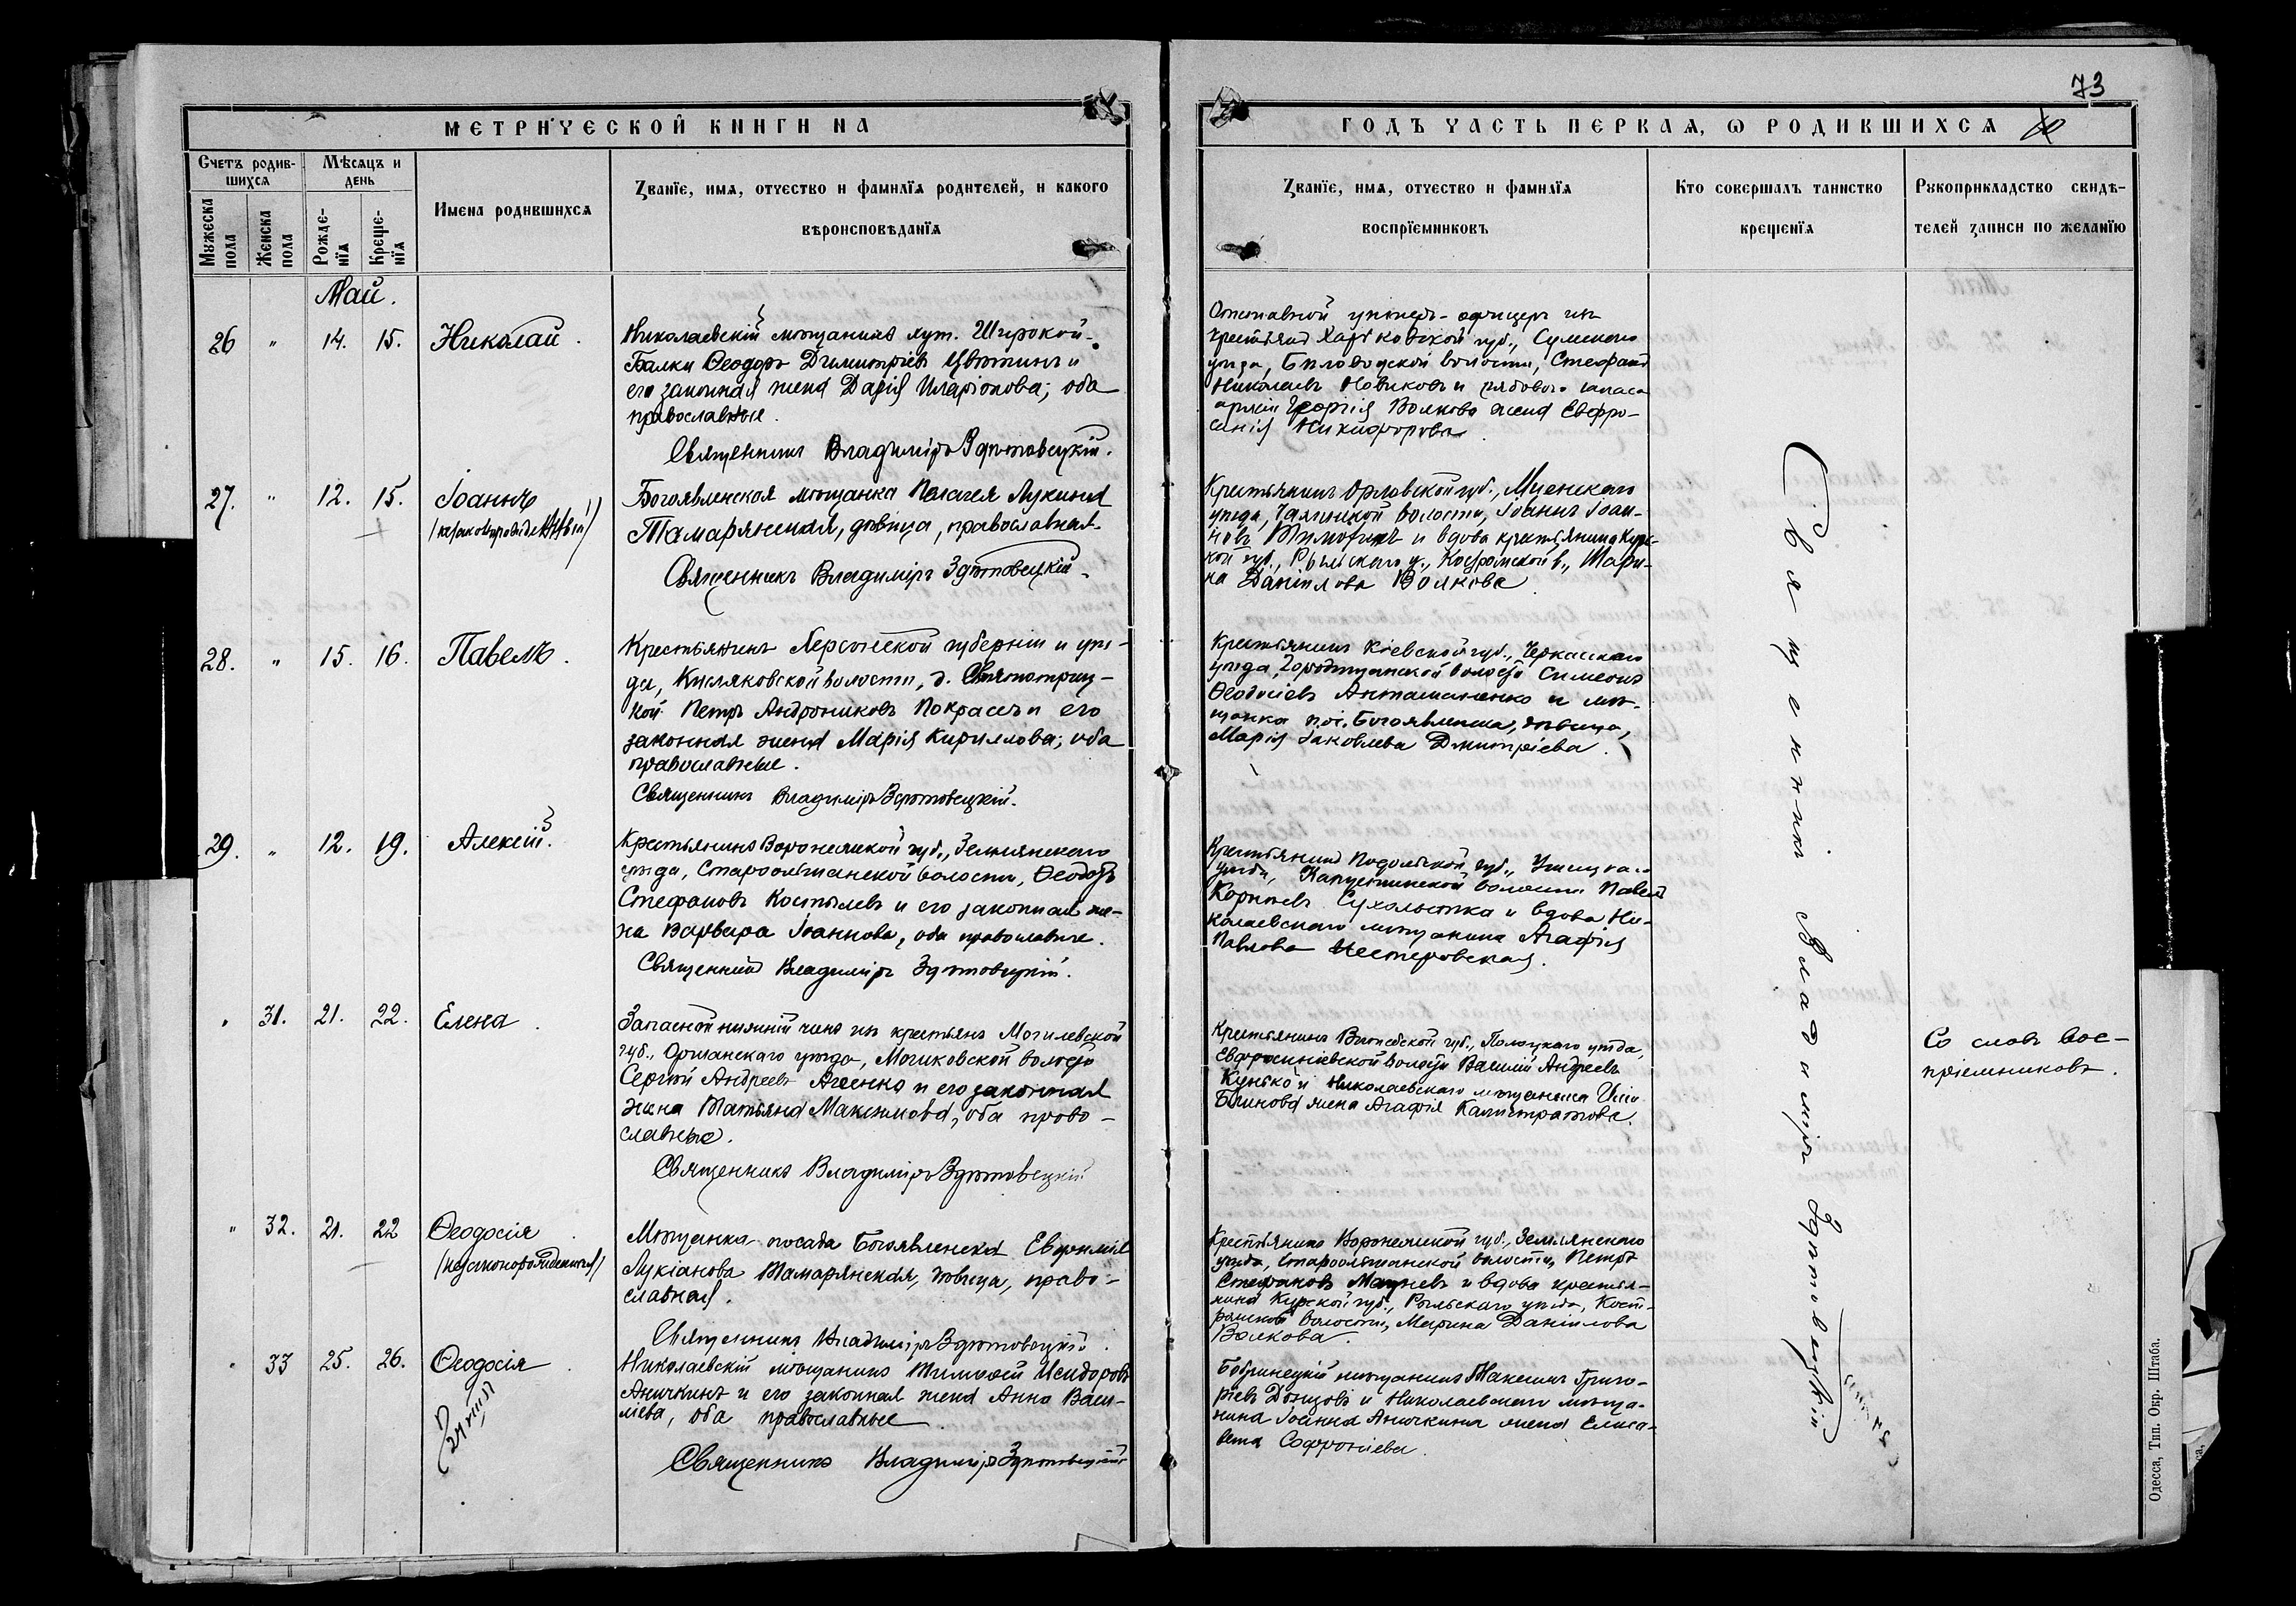 73
МЕТРИЧЕСКОЙ КНИГИ НА
ГОДЪ ЧАСТЬ ПЕРВАЯ, Ѡ РОДИВШИХСЯ
Счетъ родив-
шихся
Мѣсяцъ и
день
Мужеска
пола
Женска
пола
Рожде-
нїя
Креще-
нїя
Имена родившихся
Званїе, имя, отчество и фамилїя родителей, и какого
вѣроисповѣданїя
Званїе, имя, отчество и фамилїя
воспрїемниковъ
Кто совершалъ таинство
крещенїя
Рукоприкладство свидѣ-
телей записи по желанїю
Май.
26 " 14. 15. Николай.
Николаевскій мѣщанинъ хут. Широкой
Балки Ѳеодоръ Димитріевъ Цвѣткинъ и
его законная жена Дарія Иларіонова; оба
православные.
Священникъ Владиміръ Здѣтовецкій.
Отставной унтеръ-офицеръ изъ
крестьянъ Харьковской губ., Сумскаго
уѣзда, Бѣловодской волости, Стефанъ
Николаевъ Новиковъ и рядового запаса
арміи Георгія Волкова жена Евфро-
синія Никифорова.
27. " 12. 15. Іоаннъ
(незаконнорожденный)
Богоявленская мѣщанка Пелагея Лукина
Тамарянская, дѣвица, православная.
Священникъ Владиміръ Здѣтовецкій.
Крестьянинъ Орловской губ., Мценскаго
уѣзда, волости, Іоаннъ Іоан-
новъ Тимохинъ и вдова крестьянина Курс-
кой губ., Рыльскаго у., Костромской в., Мари-
на Даніилова Волкова.
28. " 15. 16. Павелъ.
Крестьянинъ Херсонской губерніи и уѣз-
да, Кисляковской волости, д. Святотроиц-
кой Петръ Андрониковъ Покрасъ и его
законная жена Марія Кириллова; оба
православные.
Священникъ Владиміръ Здѣтовецкій.
Крестьянинъ Кіевской губ., Черкасскаго
уѣзда, Городищанской волости Симеонъ
Ѳеодосіевъ и мѣ-
щанка пос. Богоявленска, дѣвица,
Марія Іаковлева Дмитріева.
29. " 12. 19. Алексій.
Крестьянинъ Воронежской губ., Землянскаго
уѣзда, Староольшанской волости, Ѳеодоръ
Стефановъ Костылевъ и его законная же-
на Варвара Іоаннова, оба православные.
Священникъ Владиміръ Здѣтовецкій.
Крестьянинъ Подольской губ., Ушицкаго
уѣзда, Капустинской волости Павелъ
Корнѣевъ и вдова Ни-
колаевскаго мѣщанина Агафія
Павлова Нестеровская.
" 31. 21. 22. Елена.
Запасной нижній чинъ изъ крестьянъ Могилевской
губ., Оршанскаго уѣзда, волости
Сергій Андреевъ и его законная
жена Татьяна Максимова, оба право-
славные.
Священникъ Владиміръ Здѣтовецкій
Крестьянинъ Витебской губ., Полоцкаго уѣзда,
Евфросиніевской волости Василій Андреевъ
Кунько и Николаевскаго мѣщанина
Блинова жена Агафія Калистратова.
Со словъ вос-
пріемниковъ.
" 32. 21. 22 Ѳеодосія
(незаконнорожденная)
Мѣщанка посада Богоявленска Евфимія
Лукіанова Тамарянская, дѣвица, право-
славная.
Священникъ Владиміръ Здѣтовецкій.
Крестьянинъ Воронежской губ., Землянскаго
уѣзда, Староольшанской волости, Петръ
Стефановъ и вдова крестья-
нина Курской губ., Рыльскаго уѣзда, Кост-
ромской волости, Марина Даніилова
Волкова.
" 33 25. 26. Ѳеодосія.
Николаевскій мѣщанинъ Тимоѳей Исидоровъ
Аничкинъ и его законная жена Анна Васи-
лієва, оба православные.
Священникъ Владиміръ Здѣтовецкій
Бобринецкій мѣщанинъ Максимъ Григо-
ріевъ Донцовъ и Николаевскаго мѣща-
нина Іоанна Аничкина жена Елиса-
вета Софроніева.
Священникъ Владиміръ Здѣтовецкій
Одесса, Тип. Окр. Штаба.